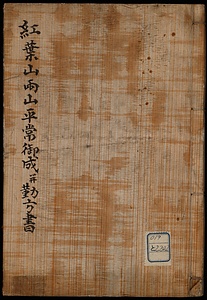 紅葉山両山平常御成并勤方書
019